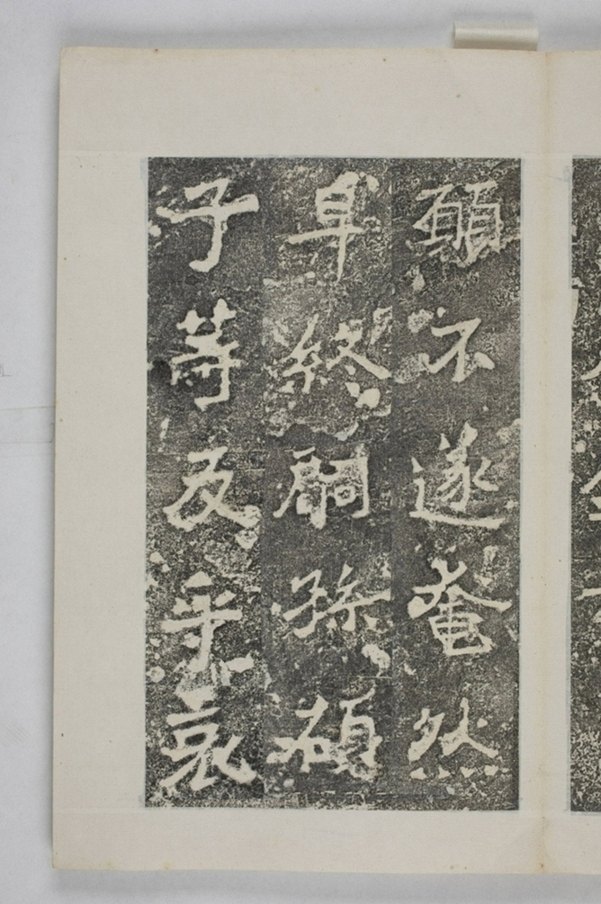 願不遂奄然
早終嗣孫碩
子等友乎哀